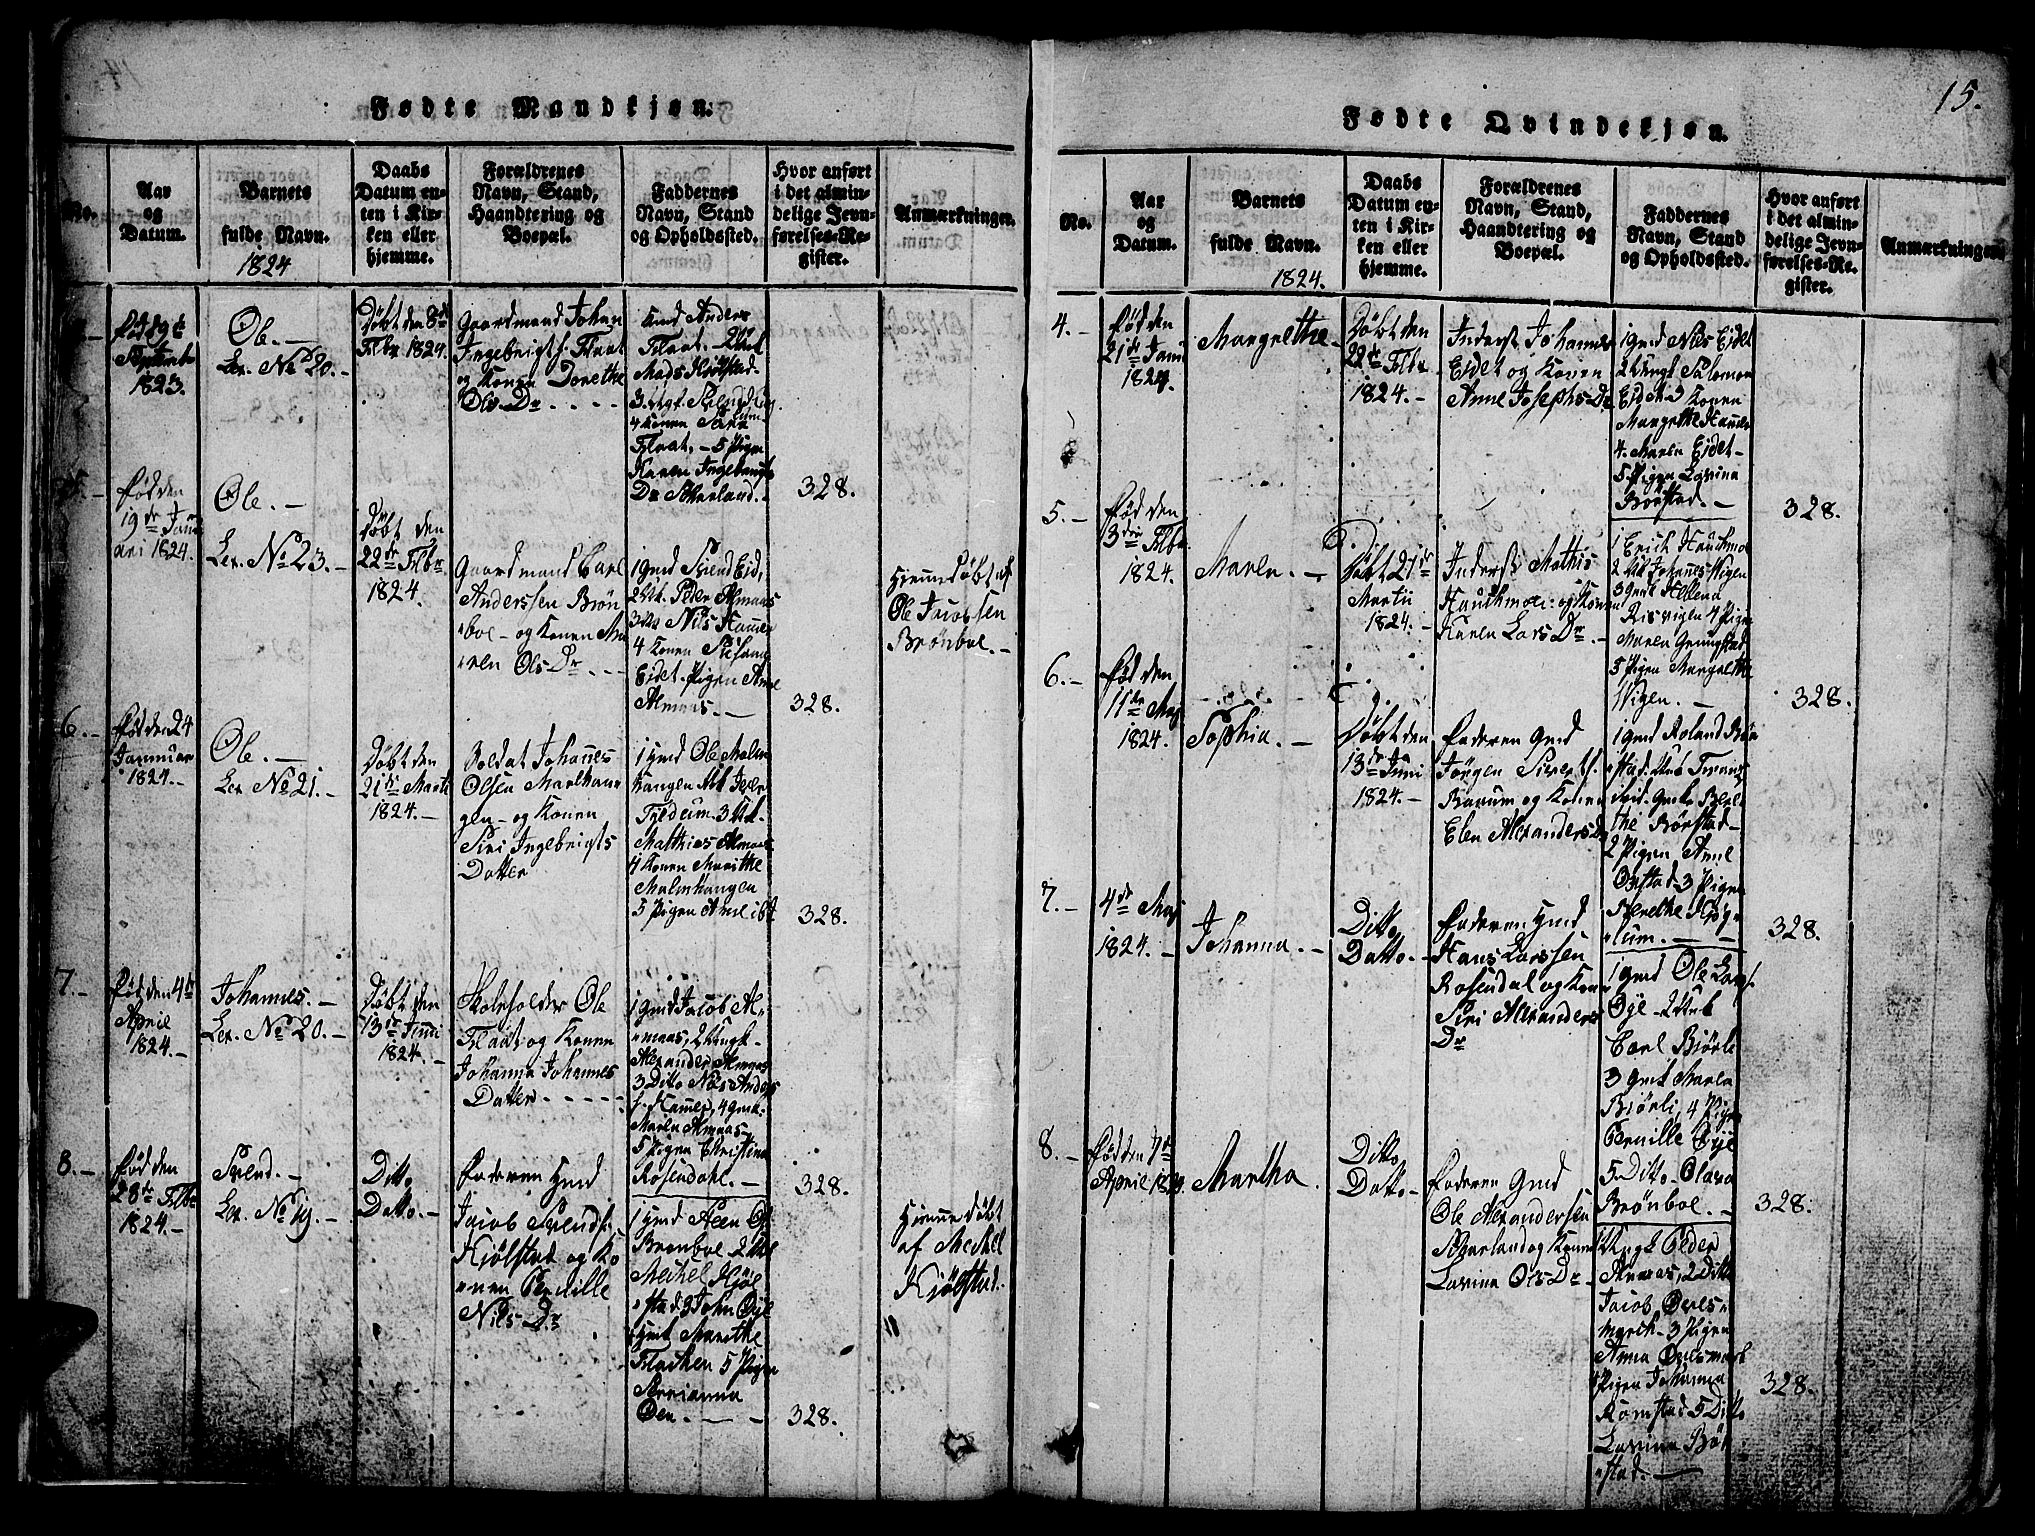 15.
Fødte Mandkjøn.
No.
Aar
og
Datum.
Barnets
fulde Navn.
1824
Daabs
Datum en-
ten i Kir-
ken eller
hjemme.
Forældrenes
Navn, Stand,
Haandtering og
Boepæl.
Faddernes
Navn, Stand
og Opholdssted.
Hvor anført
i det almin-
delige Jevn-
førelses-Re-
gister.
Anmærkninger.
Septemb
1823.
Ole. —
Lev. No 20. —
Døbt den 8de
Febr 1824.
Gaardmand Johan
Ingebrigts. Flaat
og Konen Dorethe
Ols Dr. - - - -
Gmd Anders
Flaat. -
Mads Kjølstad
4 Konen
Flaat. - 5 Pigen
Karen Ingebrigts
Dr Skarland. -
328.
5. -
Fød den
19de Janu
ari 1824.
Ole. —
Lev. No 23. —
Døbt den
22de Febr.
1824.
Gaardmand Carl
Anderssen Brøn
bol - og Konen Ma
ren Ols Dr. - -
1 Gmd Svend Eid,
2 Uk. Peder Almaas
3 Uk Nils Hammer
4 Konen
Eidet. Pigen Anne
Almaas. —
328.
Hjemmedøbt af
Ole Jacobsen
Brønbol. -
6. -
Fød den 24
Januar
1824. -
Ole. —
Lev. No 21. -
Døbt den
21de Marti
1824. -
Soldat Johannes
Olsen Marlhaun
gen - og Konen
Siri Ingebrigts
Datter
1 Gmd Ole Malm
haugen
3 Uk.
Matthias Almaas
4 Konen Marithe
Malmhaugen
5 Pigen Anne ibt
328.
7. -
Fød den 4de
April
1824. -
Johannes. —
Lev. No 20. -
Døbt den
13de Juni
1824. -
Skoleholder Ole
Flaat og Konen
Johanna Johannes
Datter - - - -
1 Gmd Jacob Al-
maas, 2 Ungk.
Alexander Almaas
3 Ditto Nils Anders
s. Hammer, 4 Gmk.
Maren Almaas -
5 Pigen Christina
Rosendahl. —
328.
8. -
Fød den
28de Febr
1824. -
Svend. —
Lev. No 19. -
Ditto
Datto. -
Faderen Gmd
Jacob Svends.
Kjølstad og Ko
nen Pernille
Nils Dr
1 Gmd Steen O
Brønbol 2 Uk
Meikel Kjøl
stad 3 John Øye
Gmk Marethe
Flacken 5 Pigen
Øen. — - -
328.
Hjemmedøbt
af Meikel
Kjølstad.
Fødte Qvindekjøn.
No.
Aar
og
Datum.
Barnets
fulde Navn.
1824.
Daabs
Datum en-
ten i Kir-
ken eller
hjemme.
Forældrenes
Navn, Stand,
Haandtering og
Boepæl.
Faddernes
Navn, Stand
og Opholdssted.
Hvor anført
i det almin-
delige Jevn-
førelses-Re-
gister.
Anmærkninger.
4. -
Fød den
21de Janu
1824.
Margrethe -
Døbt den
22de Febr
1824. -
Inderst Johannes
Eidet og Konen
Anne Josephs Dr
1 Gmd Nils Eidet
2 Ungk Salomon
Eidet 3 Konen
Margrethe Hammer
4. Maren Eidet -
5 Pigen Lavina
Børstad. -
328.
5. -
Fød den
13de Febr
1824.
Maren. -
Døbt 21de
Martii
1824. -
Inderst Mathis
Hauchmoe: og Konen
Karen Lars Dr. -
1 Erich Hauchmoe
2 Uk Johannes Vigen
3 Gmk Hellena
Risvigen 4 Pigen
Maren Grungstad
5 Pigen Margrethe
Vigen. -
328.
6. -
Fød den
11de Maj
1824.
Sophia. -
Døbt den
13de Juni
1824. -
Faderen Gmd
Jørgen Siverts.
Barum og Konen
Elen Alexanders Dr
1 Gmd Roland Bør
stad. 2
Gmk Bere
the Børstad -
2 Pigen Anne
3 Pigen
Berethe Kjøg
lum. —
328.
7. -
4de Maj
1824. -
Johanna. -
Ditto
Datto. -
Faderen Gmd
Hans Larssen
Rosendal og Konen
Siri Alexanders
Dr
1 Gmd Ole Lars.
Øye - 2 Uk
Carl Bjørli
3 Gmk Maren
Bjørli, 4 Pigen
Pernille Øye
5 Ditto Olava
Brønbol. —
328.
8. -
Fød den 7de
April 1824.
Martha.
Ditto
Datto -
Faderen Gmd
Ole Alexandersen
Skarland og Konen
Lavina Ols Dr -
1 Ungk Peder
Almaas, 2 Ditto
Jacob Overs-
march - 3 Pigen
Anna Oversmark
4 Pigen Johanna
Romstad 5 Ditto
Lavina Bør
stad. —
328.